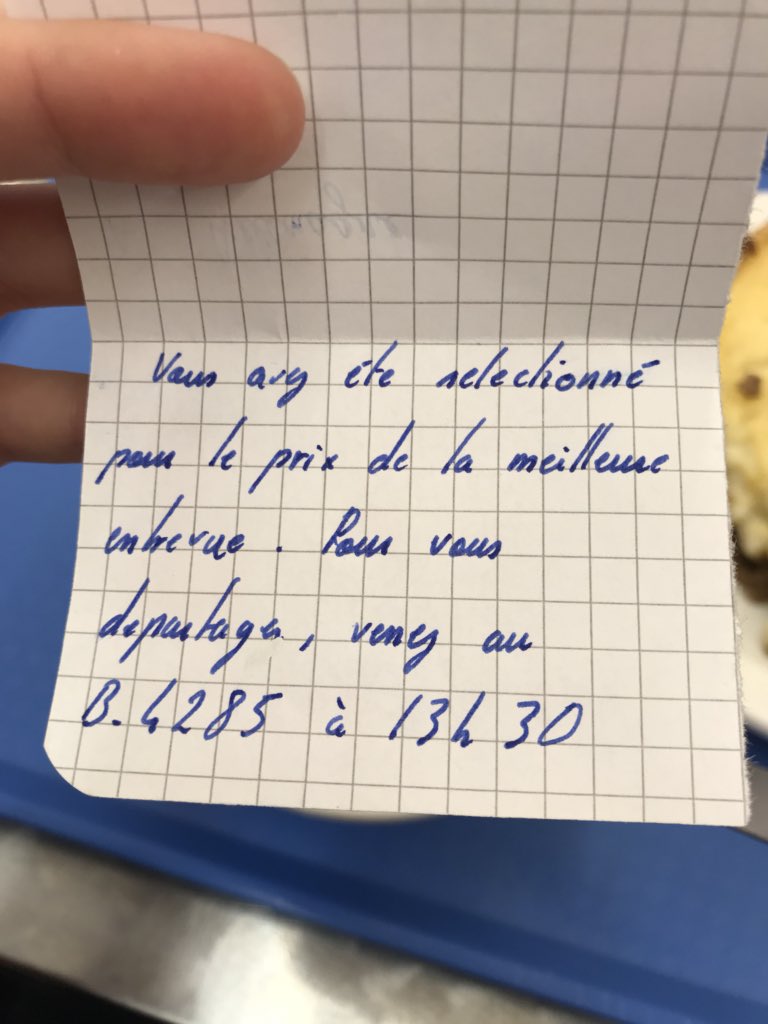 Vous avez été selectionné
pour le prix de la meilleure
entrevue. Pour vous
departager, venez au
B.4285 à 13h30